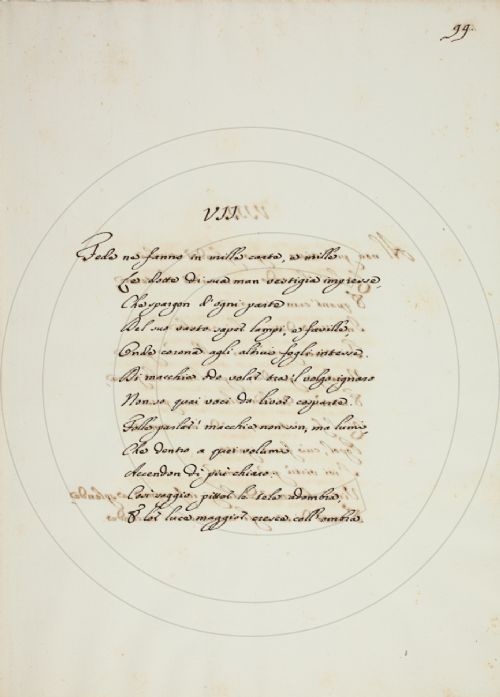 99.
VII.
Fede ne fanno in mille carte, e mille
Le dotte di sua man vestigia impresse,
Che spargon d'ogni parte
Del suo vasto saper lampi, e faville
Onde corona agli altrui fogli intesse.
Di macchie odo volar tra 'l volgo ignaro
Non so quai voci da livor cosparte.
Folle parlar! macchie non son, ma lumi,
Che dentro a quei volumi
Accendon di più chiaro.
Così saggio pittor le tele adombra,
E lor luce maggior cresce coll' ombra.